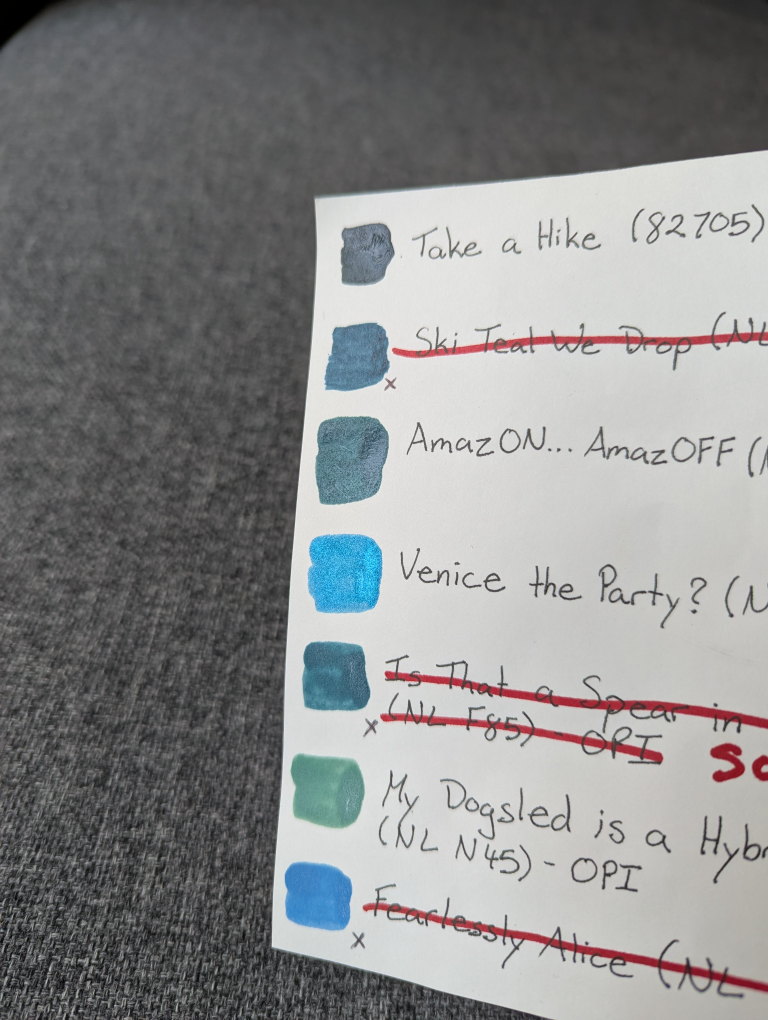 Take a Hike (82705)
Ski Teal We Drop (NL
AmazON... AmazOFF (
Venice the Party? (N
Is That a Spear in
(NL F85) - OPI
My Dogsled is a Hybr
(NL N45) - OPI
Fearlessly Alice (NL